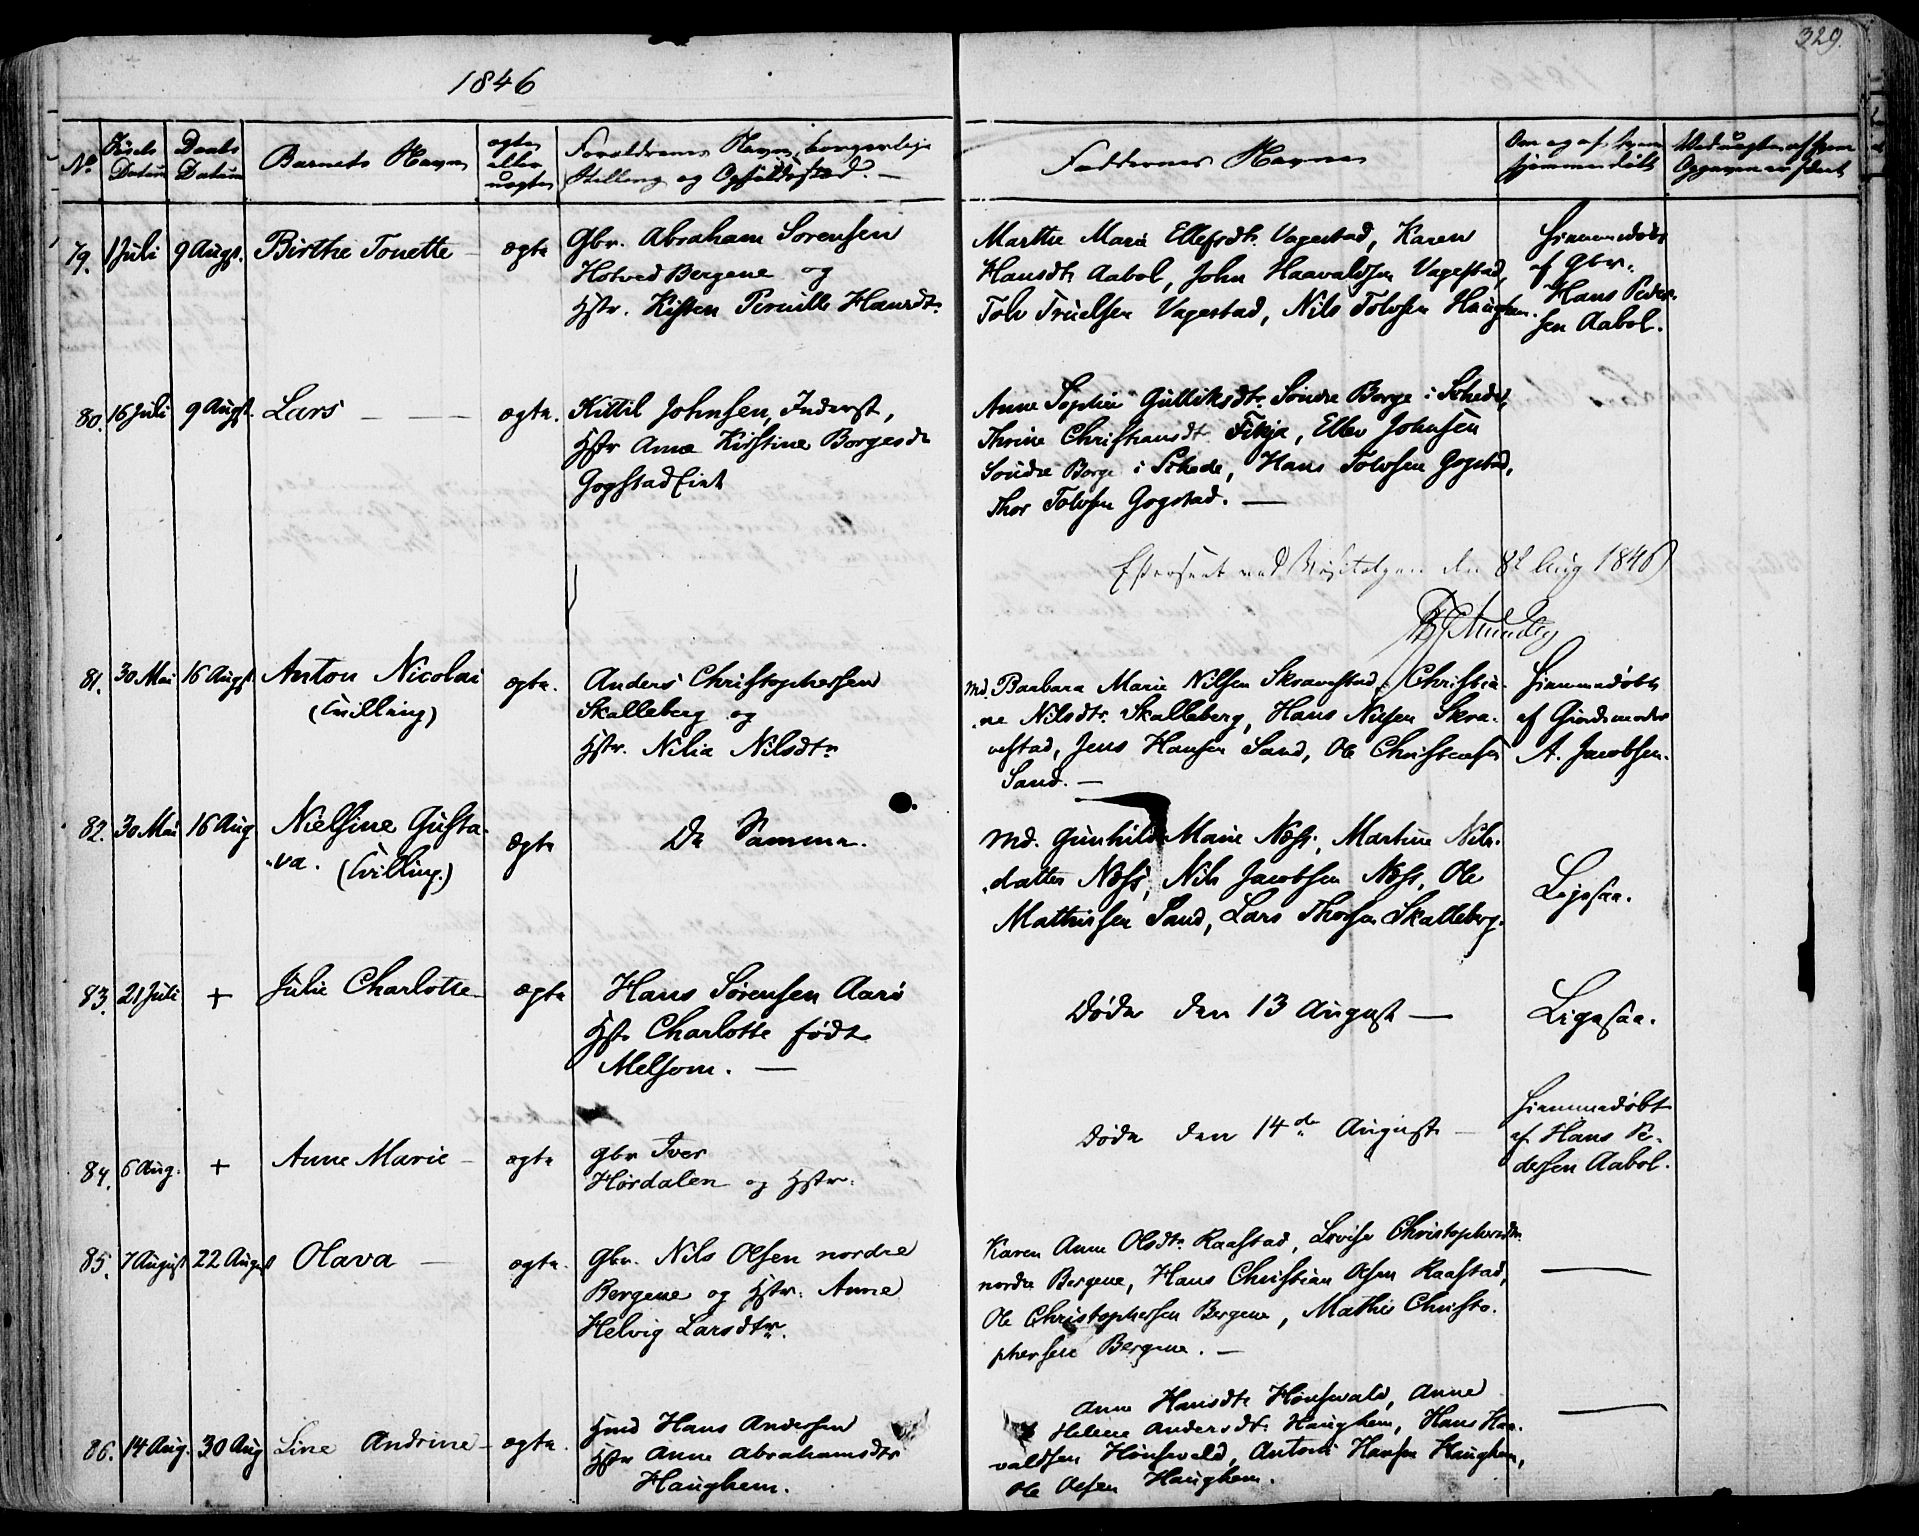 329.
1846
No Fødsels Datum
Daabs Datum
Barnets Navn
ægte eller uægte
Forældrenes Navn, borgerlige
Stilling og Opholdssted. —
Faddernes Navne
Om og af hvem
hjemmedøbt
79. 1 Juli 9 Augst. Birthe Tonette — ægte
Gbr. Abraham Sørensen
Hotved Bergene og
Hstr. Kisten Pernille Hansdtr.
Marthe Marie Ellefsdtr. Vagestad, Karen
Hansdtr Aabol, John Haavaldsen Vagestad,
Tolv Truelsen Vagestad, Nils Tolvsen Haughem.
Hiemmedøbt
af Gbr.
Hans Peder-
sen Aabol.
80. 16 Juli 9 Augst. Lars — — — ægte.
Kittil Johnsen, Inderst,
Hstr Anne Kirstine Borgesdr
Gogstad Eiet
Anne Sophie Gulliksdtr. Søndre Borge i Schede,
Thrine Christiansdtr. Fikja, Ellev Johnsen
Søndre Borge i Schede, Hans Tolvsen Gogstad,
Thor Tolvsen Gogstad. —
Efterseet ved Visitatsen den 8d Aug 1846
81. 30 Mai 16 Augst Anton Nicolai
(Tvilling)
ægte.
Anders Christophersen
Skalleberg og
Hstr. Nilia Nilsdtr
Md. Barbara Marie Nilsen Skravestad, Christia-
ne Nilsdtr. Skalleberg, Hans Nilsen Skra-
vestad, Jens Hansen Sand, Ole Christensen
Sand. —
Hiemmedøbt
af Giordemoder
A. Jacobsen.
82. 30 Mai 16 Aug Nielsine Gusta-
va. (Tvilling.)
Ægte
De Samme.
Md. Gunhild Marie Næss, Martine Nils-
datter Næss, Nils Jacobsen Næss, Ole
Mathisen Sand, Lars Thorsen Skalleberg.
Ligesaa.
83. 21 Juli + Julie Charlotte — ægte
Hans Sørensen Aarø
Hstr Charlotte født
Melsom. —
Døde den 13 August —
Ligesaa.
84. 6 Aug. + Anne Marie — ægte
Gbr Iver
Hørdalen og Hstr.
Døde den 14de August —
Hiemmedøbt
af Hans Pe-
dersen Aabol.
85. 7 August 22 August Olava — ægte.
Gbr. Nils Olsen nordre
Bergene og Hstr. Anne
Helvig Larsdtr.
Karen Anne Olsdtr. Raastad, Lovise Christophersdtr.
nordre Bergene, Hans Christian Olsen Raastad,
Ole Christophersen Bergene, Mathis Christo-
phersen Bergene. —
86. 14 Aug. 30 Aug Line Andrine — ægte.
Hmd Hans Andersen
Hstr Anne Abrahamsdtr
Haughem.
Anne Hansdtr Hønsvald, Anne
Helene Andersdtr. Haughem, Hans Haa-
valdsen Hønsvald, Anton Hansen Haughem,
Ole Olsen Haughem.